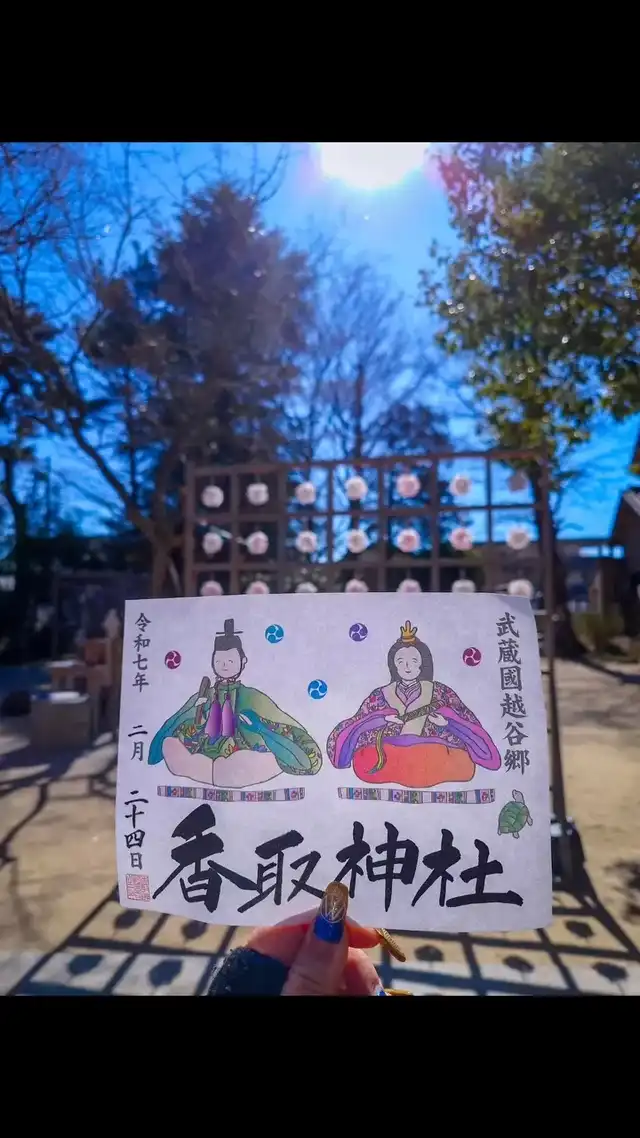 武蔵國越谷郷
香取神社
令和七年 二月 二十四日